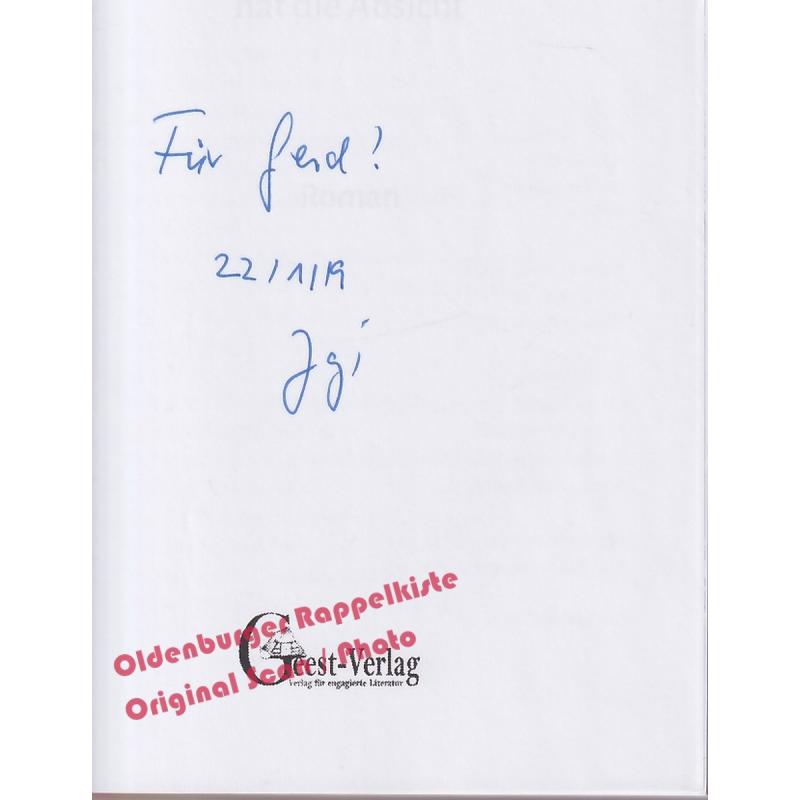 hat die Absicht
Für Gerd!
Roman
22/1/19
Jgi
Oldenburger Rappelkiste
Original Scan / Photo
Geest-Verlag
Verlag für engagierte Literatur